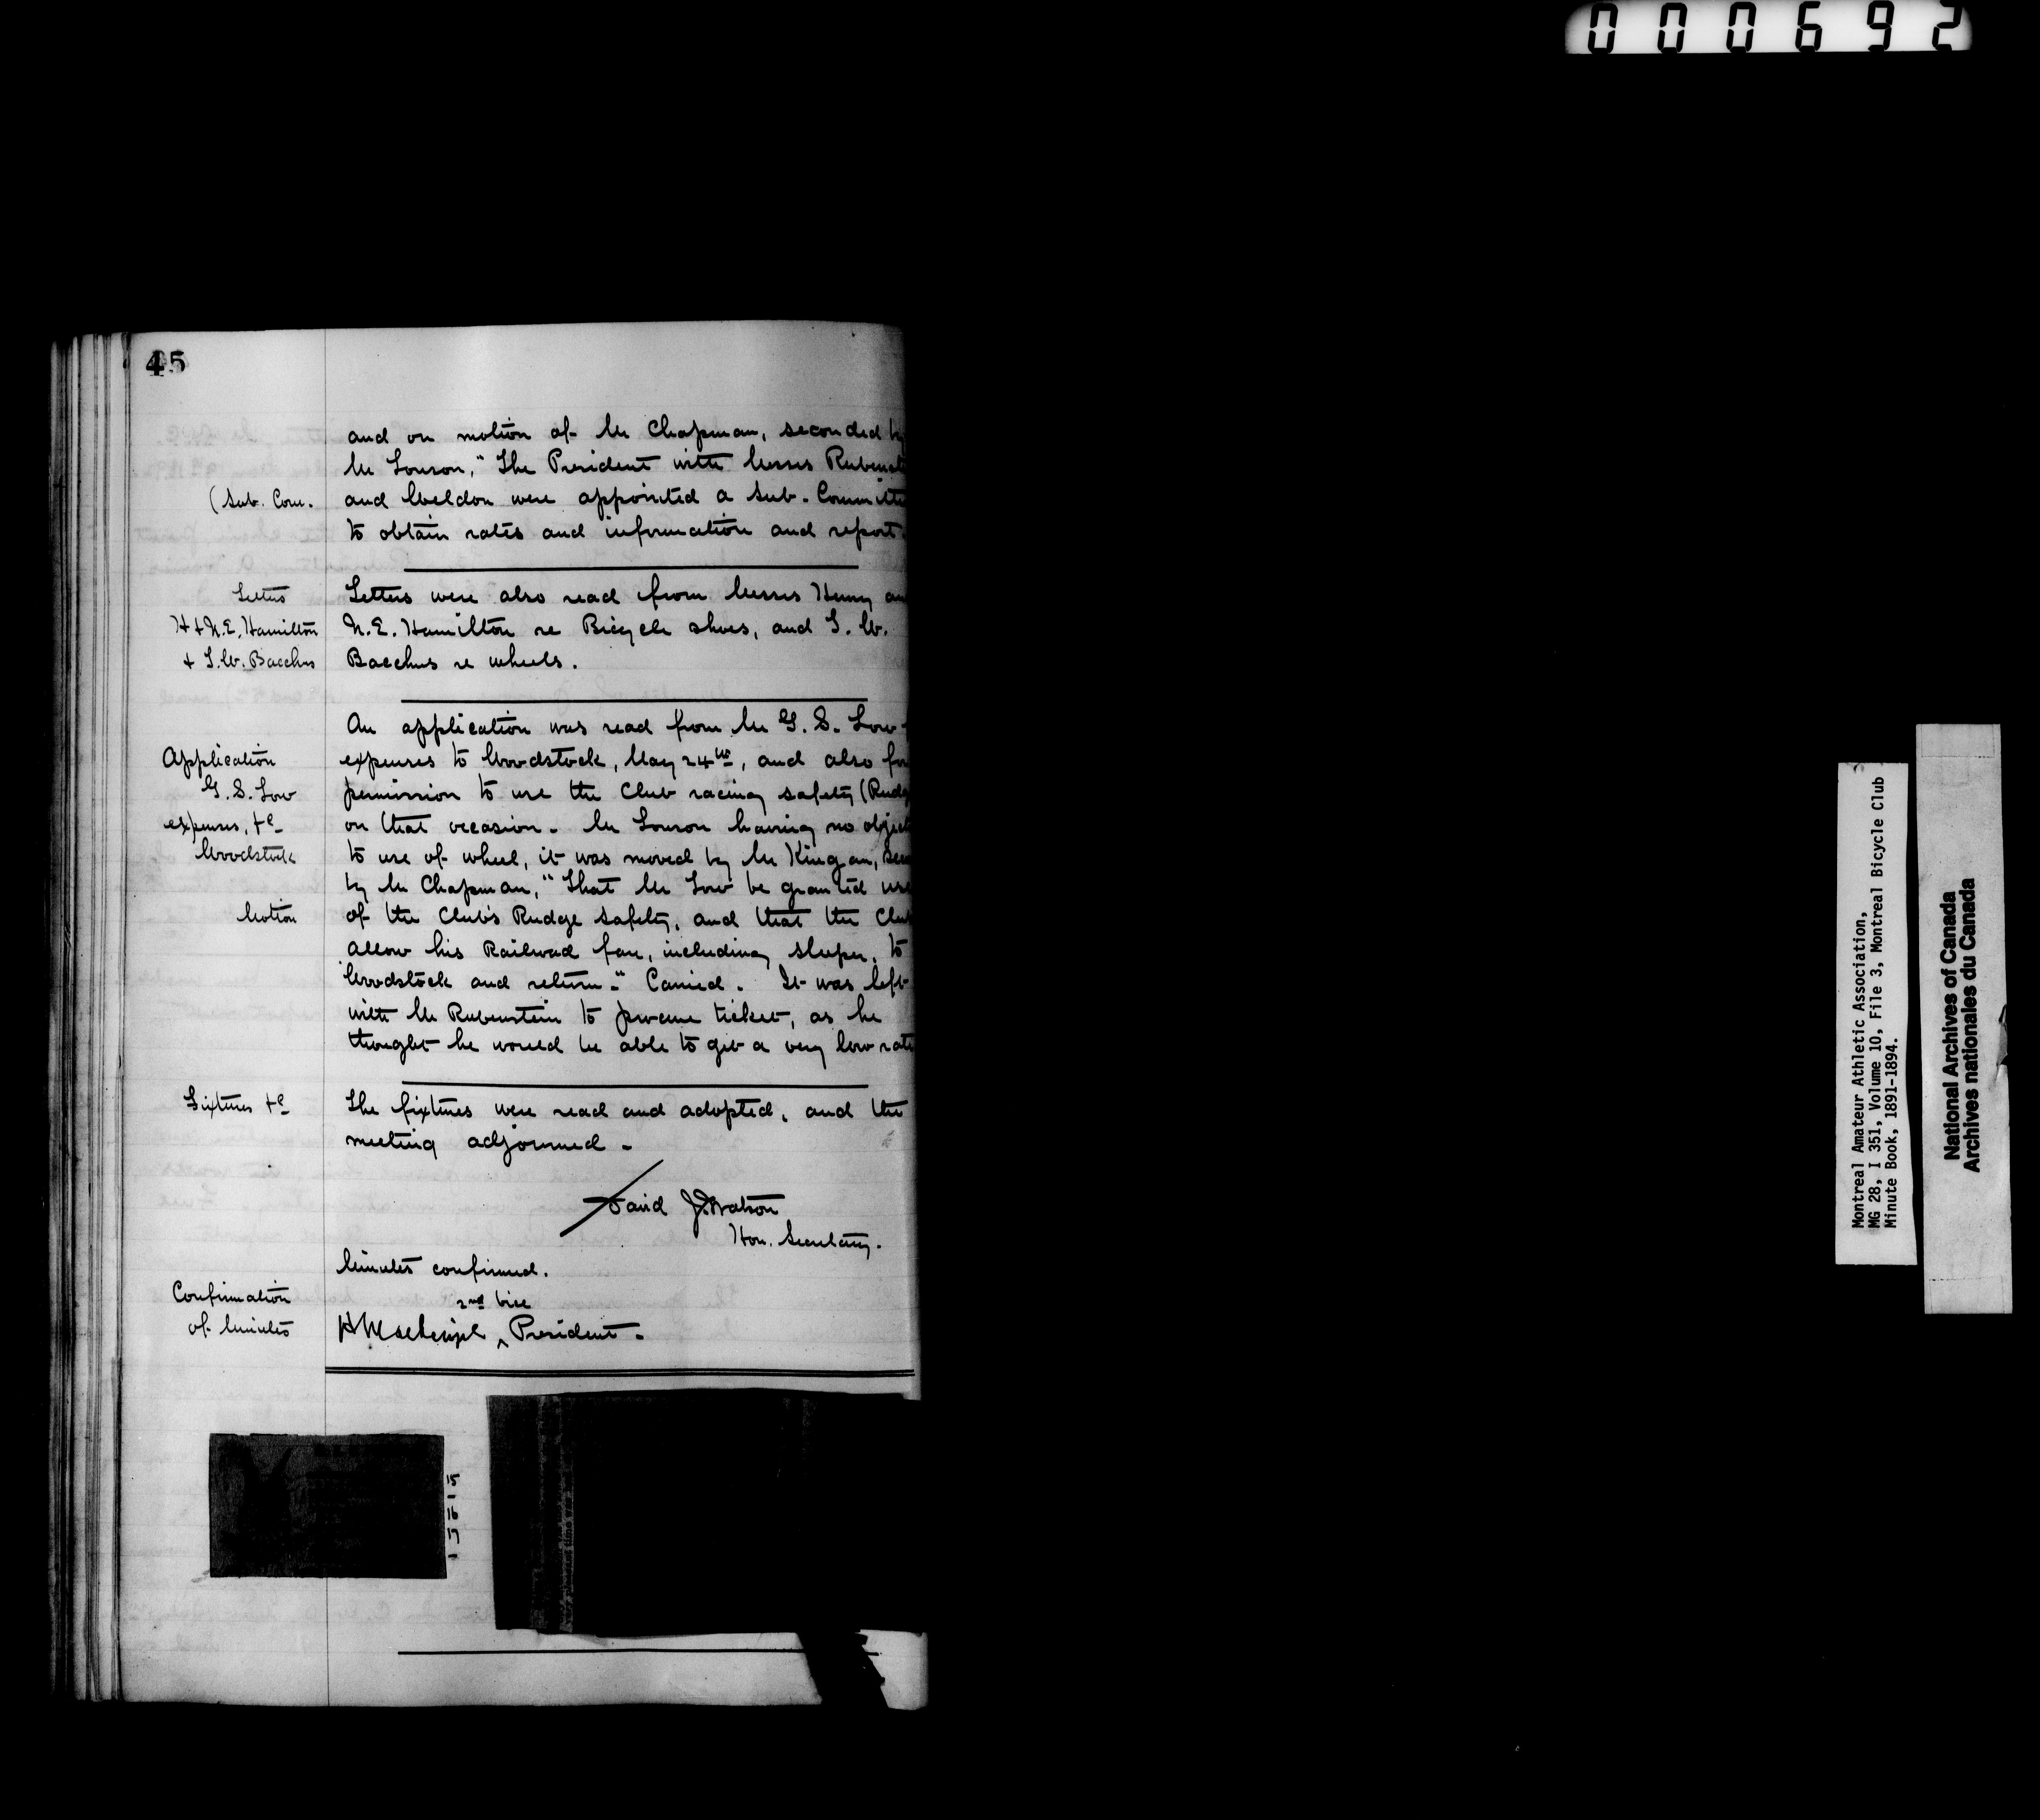 000692
45
and on motion of Mr Chapman, seconded by
Mr Louson, "The President with Messrs Rubenst
(Sub. Com.
and Weldon were appointed a Sub-Committe
to obtain rates and information and report.
Letters
H + N.E. Hamilton
+ T.W. Bacchus
Letters were also read from Messrs Henry an
N.E. Hamilton re Bicycle shoes, and T. W.
Bacchus re wheels.
Application
G. S. Low
expenses, &c
Woodstock
Motion
An application was read from Mr G. S. Low
expenses to Woodstock, May 24th, and also for
permission to use the Club racing safety (Rudg
on that occasion. Mr Louson having no object
to use of wheel, it was moved by Mr Kingan, sec
by Mr Chapman, "That Mr Low be granted use
of the Club's Rudge safety, and that the Club
allow his Railroad fare, including sleeper, to
Woodstock and return." Carried. It was left
with Mr Rubenstein to procure ticket, as he
thought he would be able to get a very low rate
Fixtures &c
The fixtures were read and adopted, and the
meeting adjourned.
David J. Watson
Hon. Secretary.
Minutes confirmed.
Confirmation
of Minutes
2nd Vice
President.
Montreal Amateur Athletic Association,
MG 28, I 351, Volume 10, File 3, Montreal Bicycle Club
Minute Book, 1891-1894.
National Archives of Canada
Archives nationales du Canada